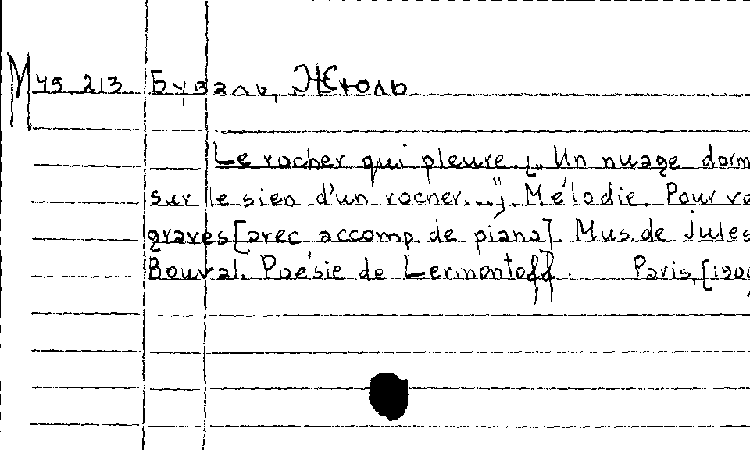 М 45 213 Буваль, Жюль
Le rocher qui pleure [„Un nuage dorm
sur le sien d'un rocher..."]. Mélodie. Pour vo
graves [avec accomp. de piano]. Mus. de Jules
Bouval. Poésie de Lermontoff. Paris, [190